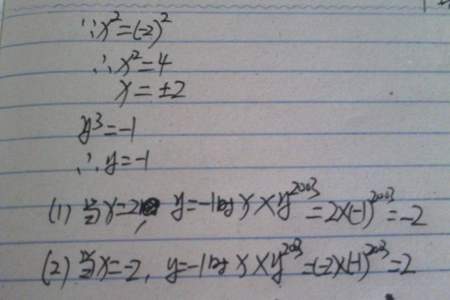 ∵x²=(-2)²
∴x²=4
x=±2
y³=-1
∴y=-1
(1) 当x=2, y=-1时 x×y²⁰⁰³=2×(-1)²⁰⁰³=-2
(2) 当x=-2, y=-1时 x×y²⁰⁰³=(-2)×(-1)²⁰⁰³=2